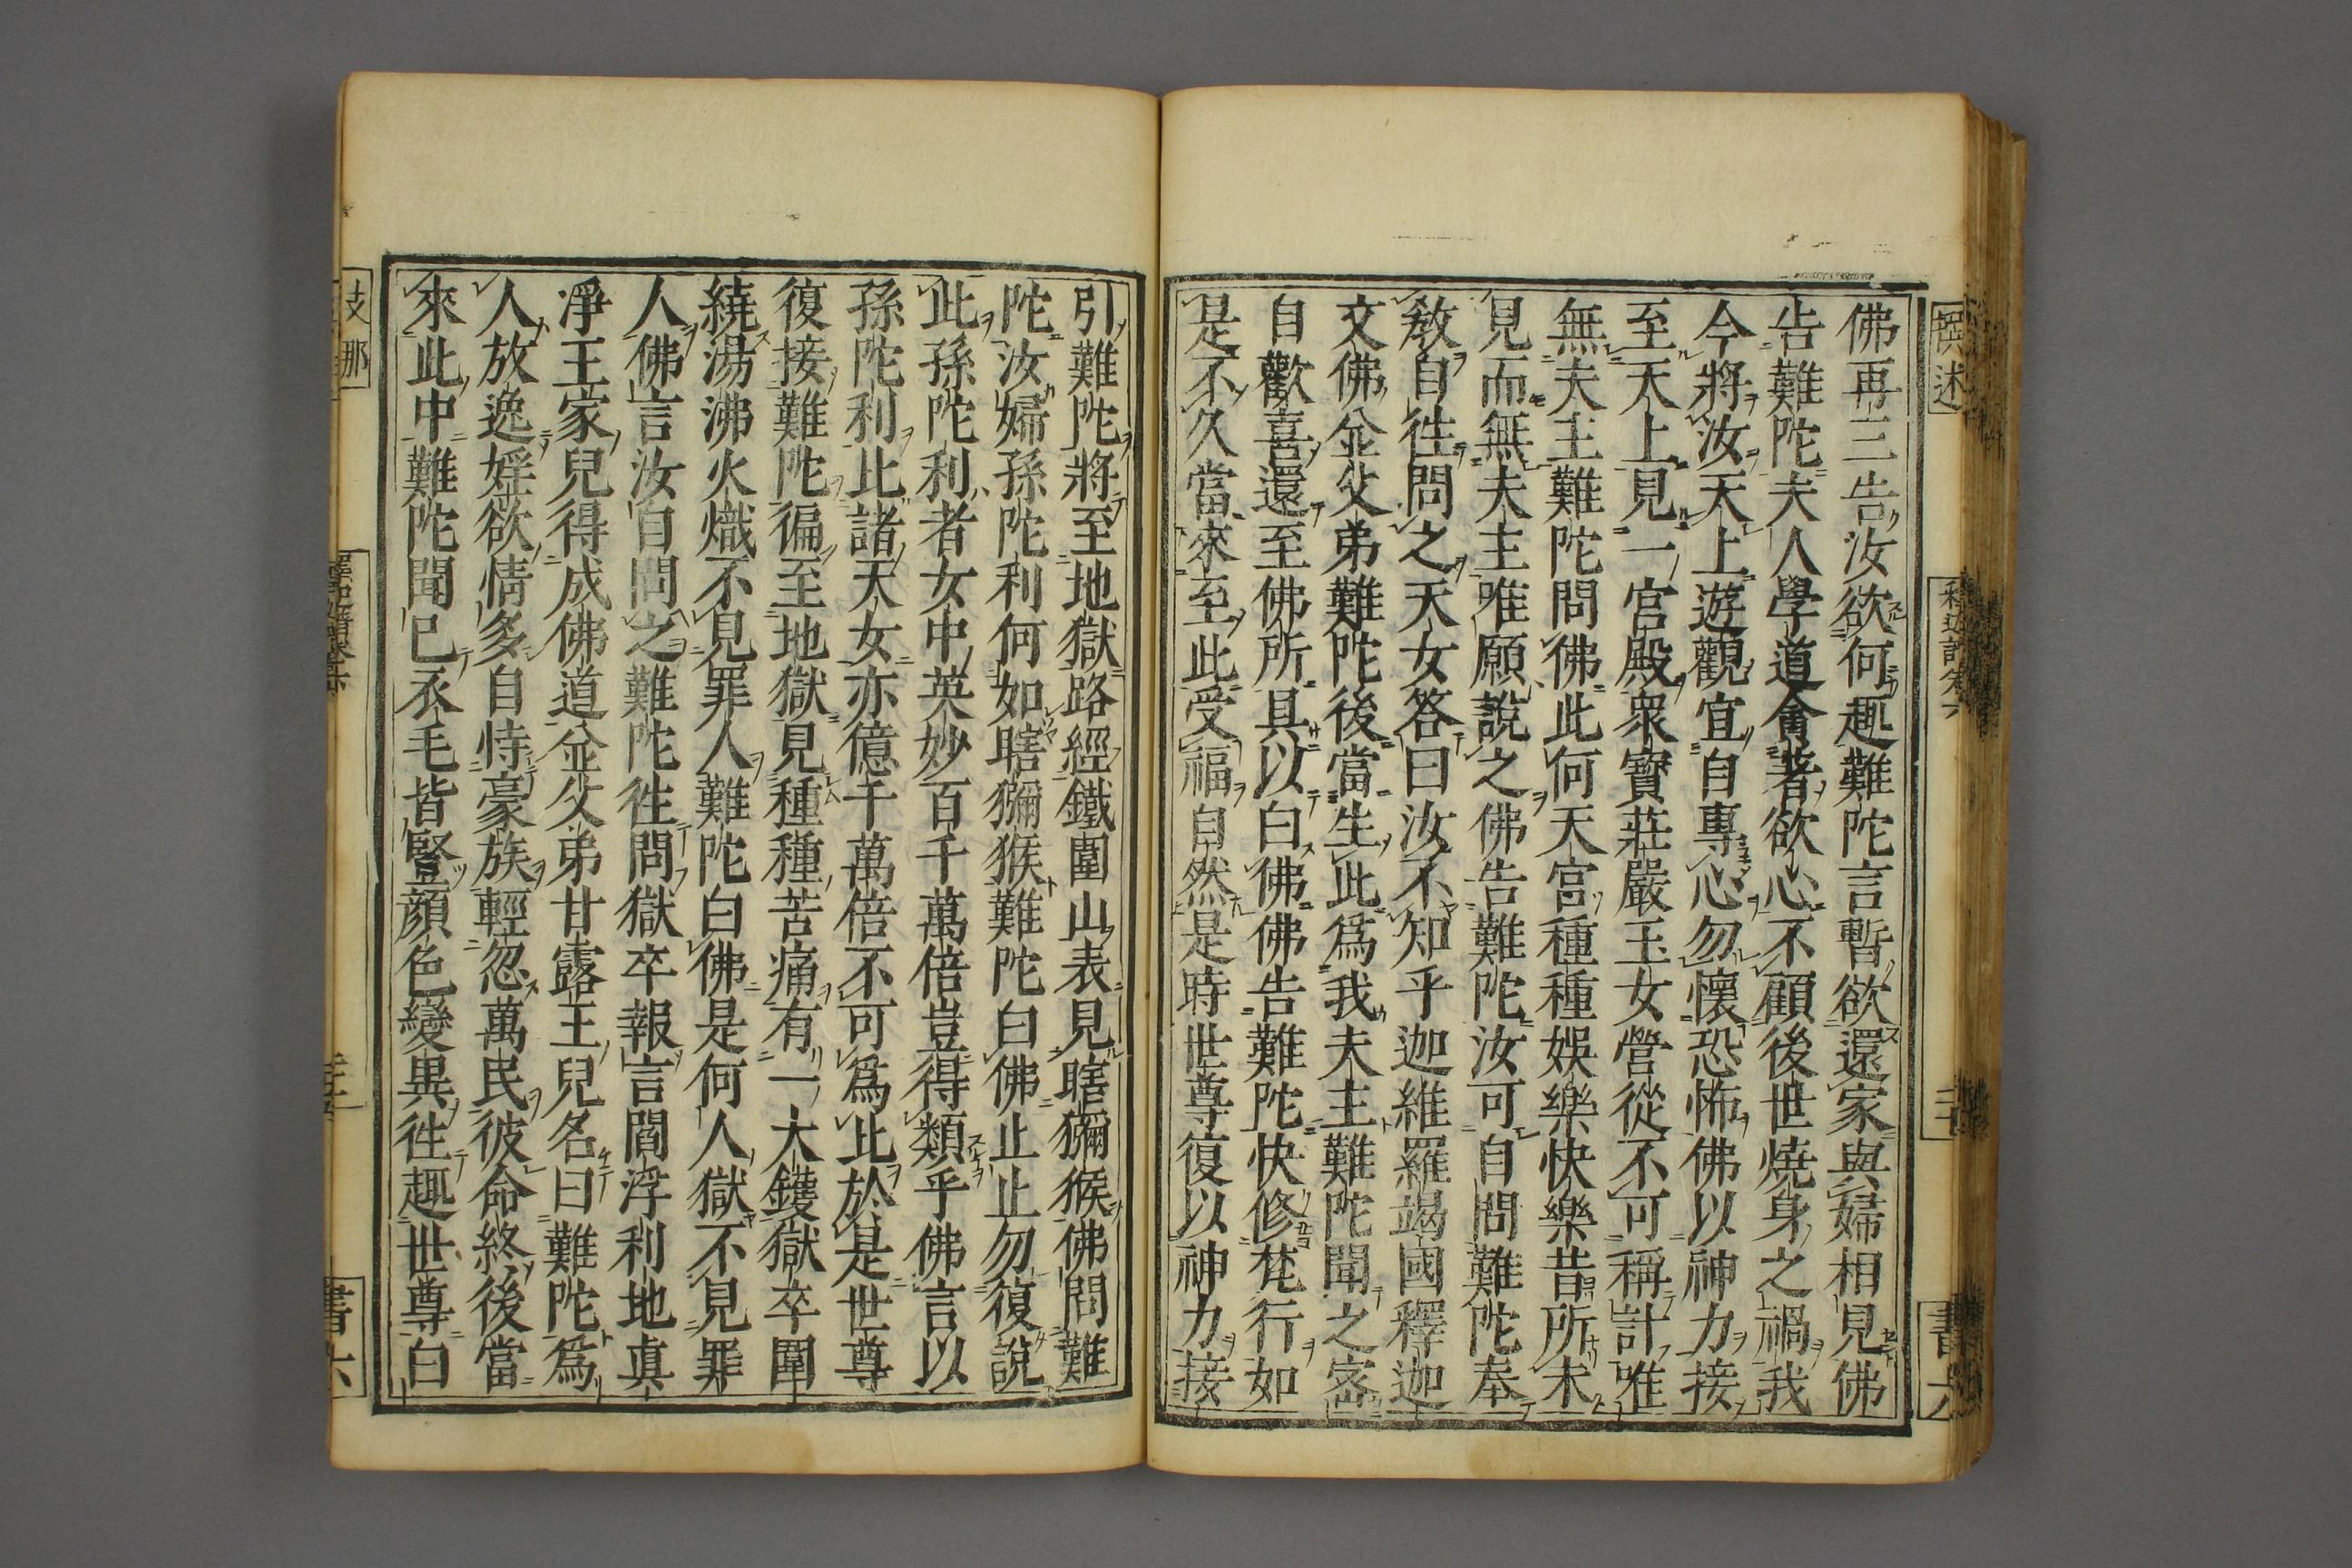 佛再三告汝欲何趣難陀言暫欲還家與婦相見佛
告難陀夫人學道貪著欲心不顧後世燒身之禍我
今將汝天上遊觀宜自專心勿懷恐怖佛以神力接
至天上見一宮殿衆寶莊嚴玉女營從不可稱計唯
無夫主難陀問佛此何天宮種種娛樂快樂昔所未
見而無夫主唯願說之佛告難陀汝可自問難陀奉
敎自徃問之天女答曰汝不知乎迦維羅竭國釋迦
文佛並父弟難陀後當生此爲我夫主難陀聞之密
自歡喜還至佛所具以白佛佛告難陀快修梵行如
是不久當來至此受福自然是時世尊復以神力接
引難陀將至地獄路經鐵圍山表見瞎獼猴佛問難
陀汝婦孫陀利何如瞎獼猴難陀白佛止止勿復說
此孫陀利者女中英妙百千萬倍豈得類乎佛言以
孫陀利比諸天女亦億千萬倍不可爲比於是世尊
復接難陀徧至地獄見種種苦痛有一大鑊獄卒圍
繞湯沸火熾不見罪人難陀白佛是何人獄不見罪
人佛言汝自問之難陀徃問獄卒報言閻浮利地眞
淨王家兒得成佛道並父弟甘露王兒名曰難陀爲
人放逸婬欲情多自恃豪族輕忽萬民彼命終後當
來此中難陀聞已衣毛皆豎顏色變異徃趣世尊白